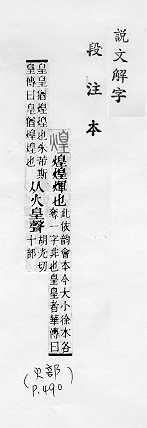 説文解字
段注本
煌 煌煌煇也 此依韵會本今大小徐本各
奪一字非也皇皇者華傳曰
皇皇猶煌煌也朱芾斯
皇傳曰皇猶煌煌也 从火皇聲 胡光切
十部
(火部)
P.490